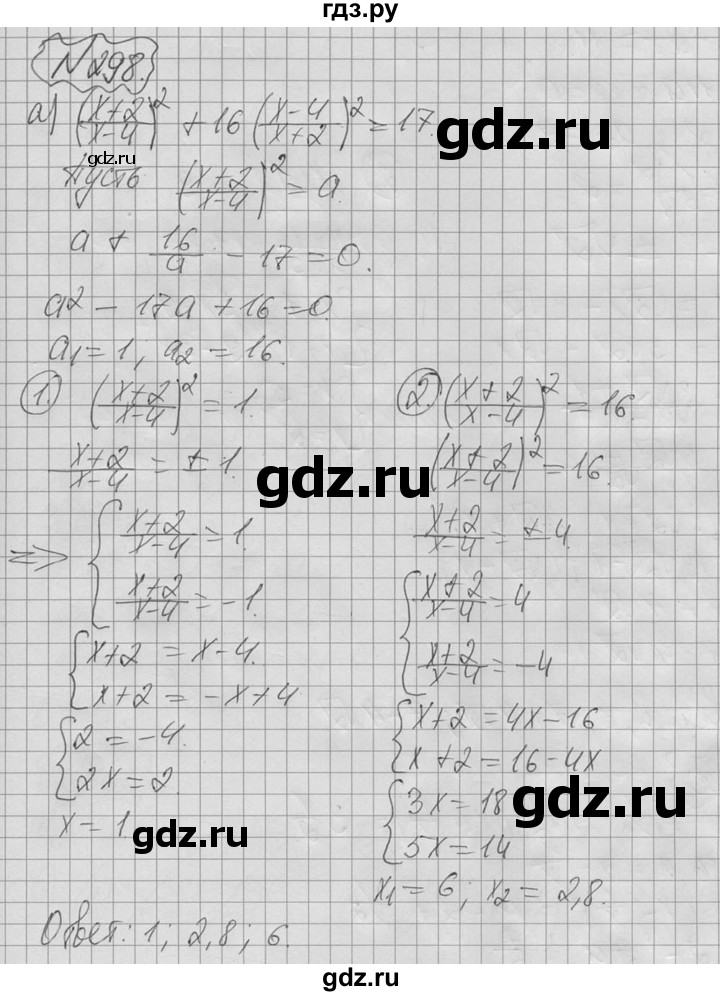 гдз.ру
№298.
а) ((x+2)/(x-4))² + 16 ((x-4)/(x+2))² = 17.
gdz.ru
Пусть ((x+2)/(x-4))² = a.
gdz.ru
a + 16/a - 17 = 0.
a² - 17a + 16 = 0.
a₁ = 1; a₂ = 16.
1. ((x+2)/(x-4))² = 1.
(x+2)/(x-4) = ±1.
=> { (x+2)/(x-4) = 1.
(x+2)/(x-4) = -1.
{ x+2 = x-4.
x+2 = -x+4
{ 2 = -4.
2x = 2.
x = 1
gdz.ru
2. ((x+2)/(x-4))² = 16.
((x+2)/(x-4))² = 16.
gdz.ru
(x+2)/(x-4) = ±4.
{ (x+2)/(x-4) = 4
(x+2)/(x-4) = -4
{ x+2 = 4x-16
x+2 = 16-4x
{ 3x = 18
5x = 14
gdz.ru
x₁ = 6; x₂ = 2,8.
Ответ: 1; 2,8; 6.
gdz.ru